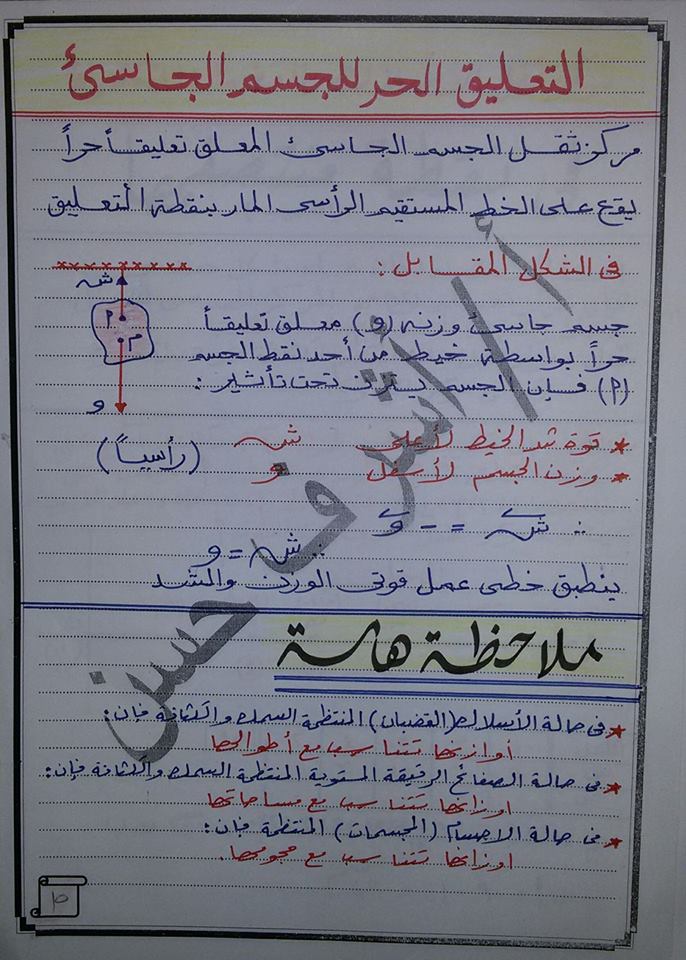 التعليق الحر للجسم الجاسئ
مركز ثقل الجسم الجاسئ المعلق تعليقاً حراً
يقع على الخط المستقيم الرأسى المار بنقطة التعليق
فى الشكل المقابل :
ش
م
م
و
جسم جاسئ وزنه (و) معلق تعليقاً
حراً بواسطة خيط من أحد نقط الجسم
(م) فإن الجسم يتزن تحت تأثير :
* قوة شد الخيط لأعلى ش
* وزن الجسم لأسفل و
(رأسياً)
∴ ش = - و
∴ ش = و
ينطبق خطى عمل قوتى الوزن والشد
ملاحظة هامة
* فى حالة الأسلاك (القضبان) المنتظمة السمك والكثافة فإن :
أوازنها تتناسب مع أطوالها
* فى حالة الصفائح الرقيقة المستوية المنتظمة السمك والكثافة فإن :
اوزانها تتناسب مع مساحاتها
* فى حالة الاجسام (المجسمات) المنتظمة فإن :
اوزانها تتناسب مع حجومها .
أ / أشرف حسن